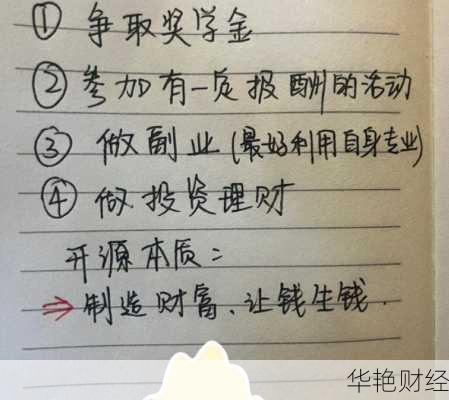 ① 争取奖学金
② 参加有一定报酬的活动
③ 做副业(最好利用自身专业)
④ 做投资理财
开源本质:
⇒ 制造财富、让钱生钱.
华艳财经